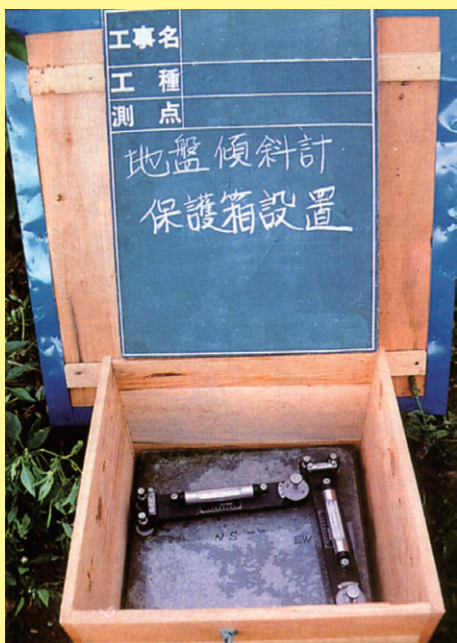 工事名
工種
測点
地盤傾斜計
保護箱設置
NS
EW